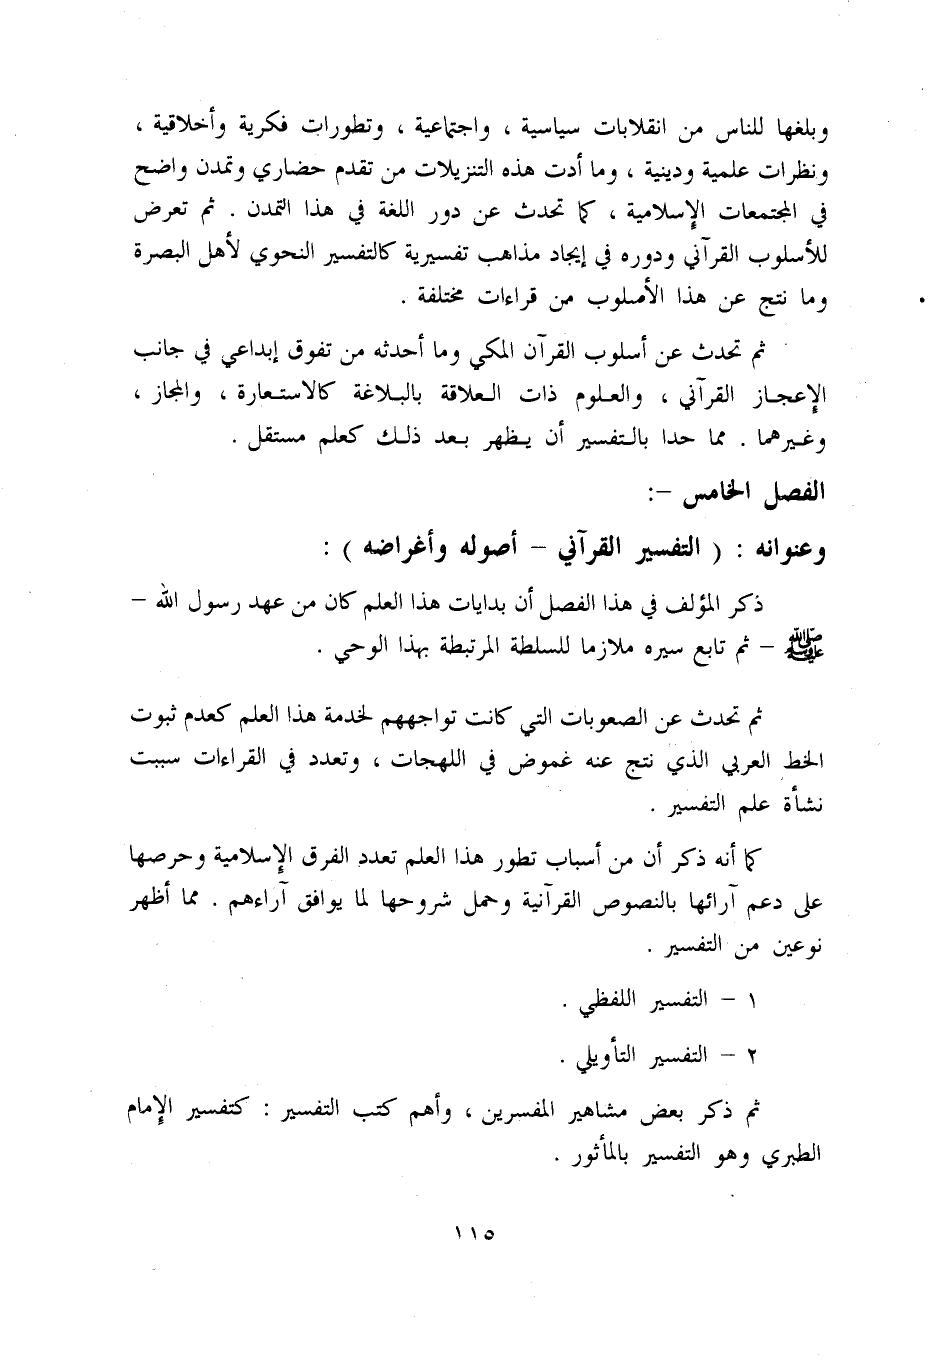 وبلغها للناس من انقلابات سياسية ، واجتماعية ، وتطورات فكرية وأخلاقية ،
ونظرات علمية ودينية ، وما أدت هذه التنزيلات من تقدم حضاري وتمدن واضح
في المجتمعات الإسلامية ، كما تحدث عن دور اللغة في هذا التمدن . ثم تعرض
للأسلوب القرآني ودوره في إيجاد مذاهب تفسيرية كالتفسير النحوي لأهل البصرة
وما نتج عن هذا الأسلوب من قراءات مختلفة .
ثم تحدث عن أسلوب القرآن المكي وما أحدثه من تفوق إبداعي في جانب
الإعجاز القرآني ، والعلوم ذات العلاقة بالبلاغة كالاستعارة ، والمجاز ،
وغيرهما . مما حدا بالتفسير أن يظهر بعد ذلك كعلم مستقل .
الفصل الخامس -:
وعنوانه : ( التفسير القرآني - أصوله وأغراضه ) :
ذكر المؤلف في هذا الفصل أن بدايات هذا العلم كان من عهد رسول الله -
ﷺ - ثم تابع سيره ملازما للسلطة المرتبطة بهذا الوحي .
ثم تحدث عن الصعوبات التي كانت تواجههم لخدمة هذا العلم كعدم ثبوت
الخط العربي الذي نتج عنه غموض في اللهجات ، وتعدد في القراءات سببت
نشأة علم التفسير .
كما أنه ذكر أن من أسباب تطور هذا العلم تعدد الفرق الإسلامية وحرصها
على دعم آرائها بالنصوص القرآنية وحمل شروحها لما يوافق آراءهم . مما أظهر
نوعين من التفسير .
١ - التفسير اللفظي .
٢ - التفسير التأويلي .
ثم ذكر بعض مشاهير المفسرين ، وأهم كتب التفسير : كتفسير الإمام
الطبري وهو التفسير بالمأثور .
١١٥